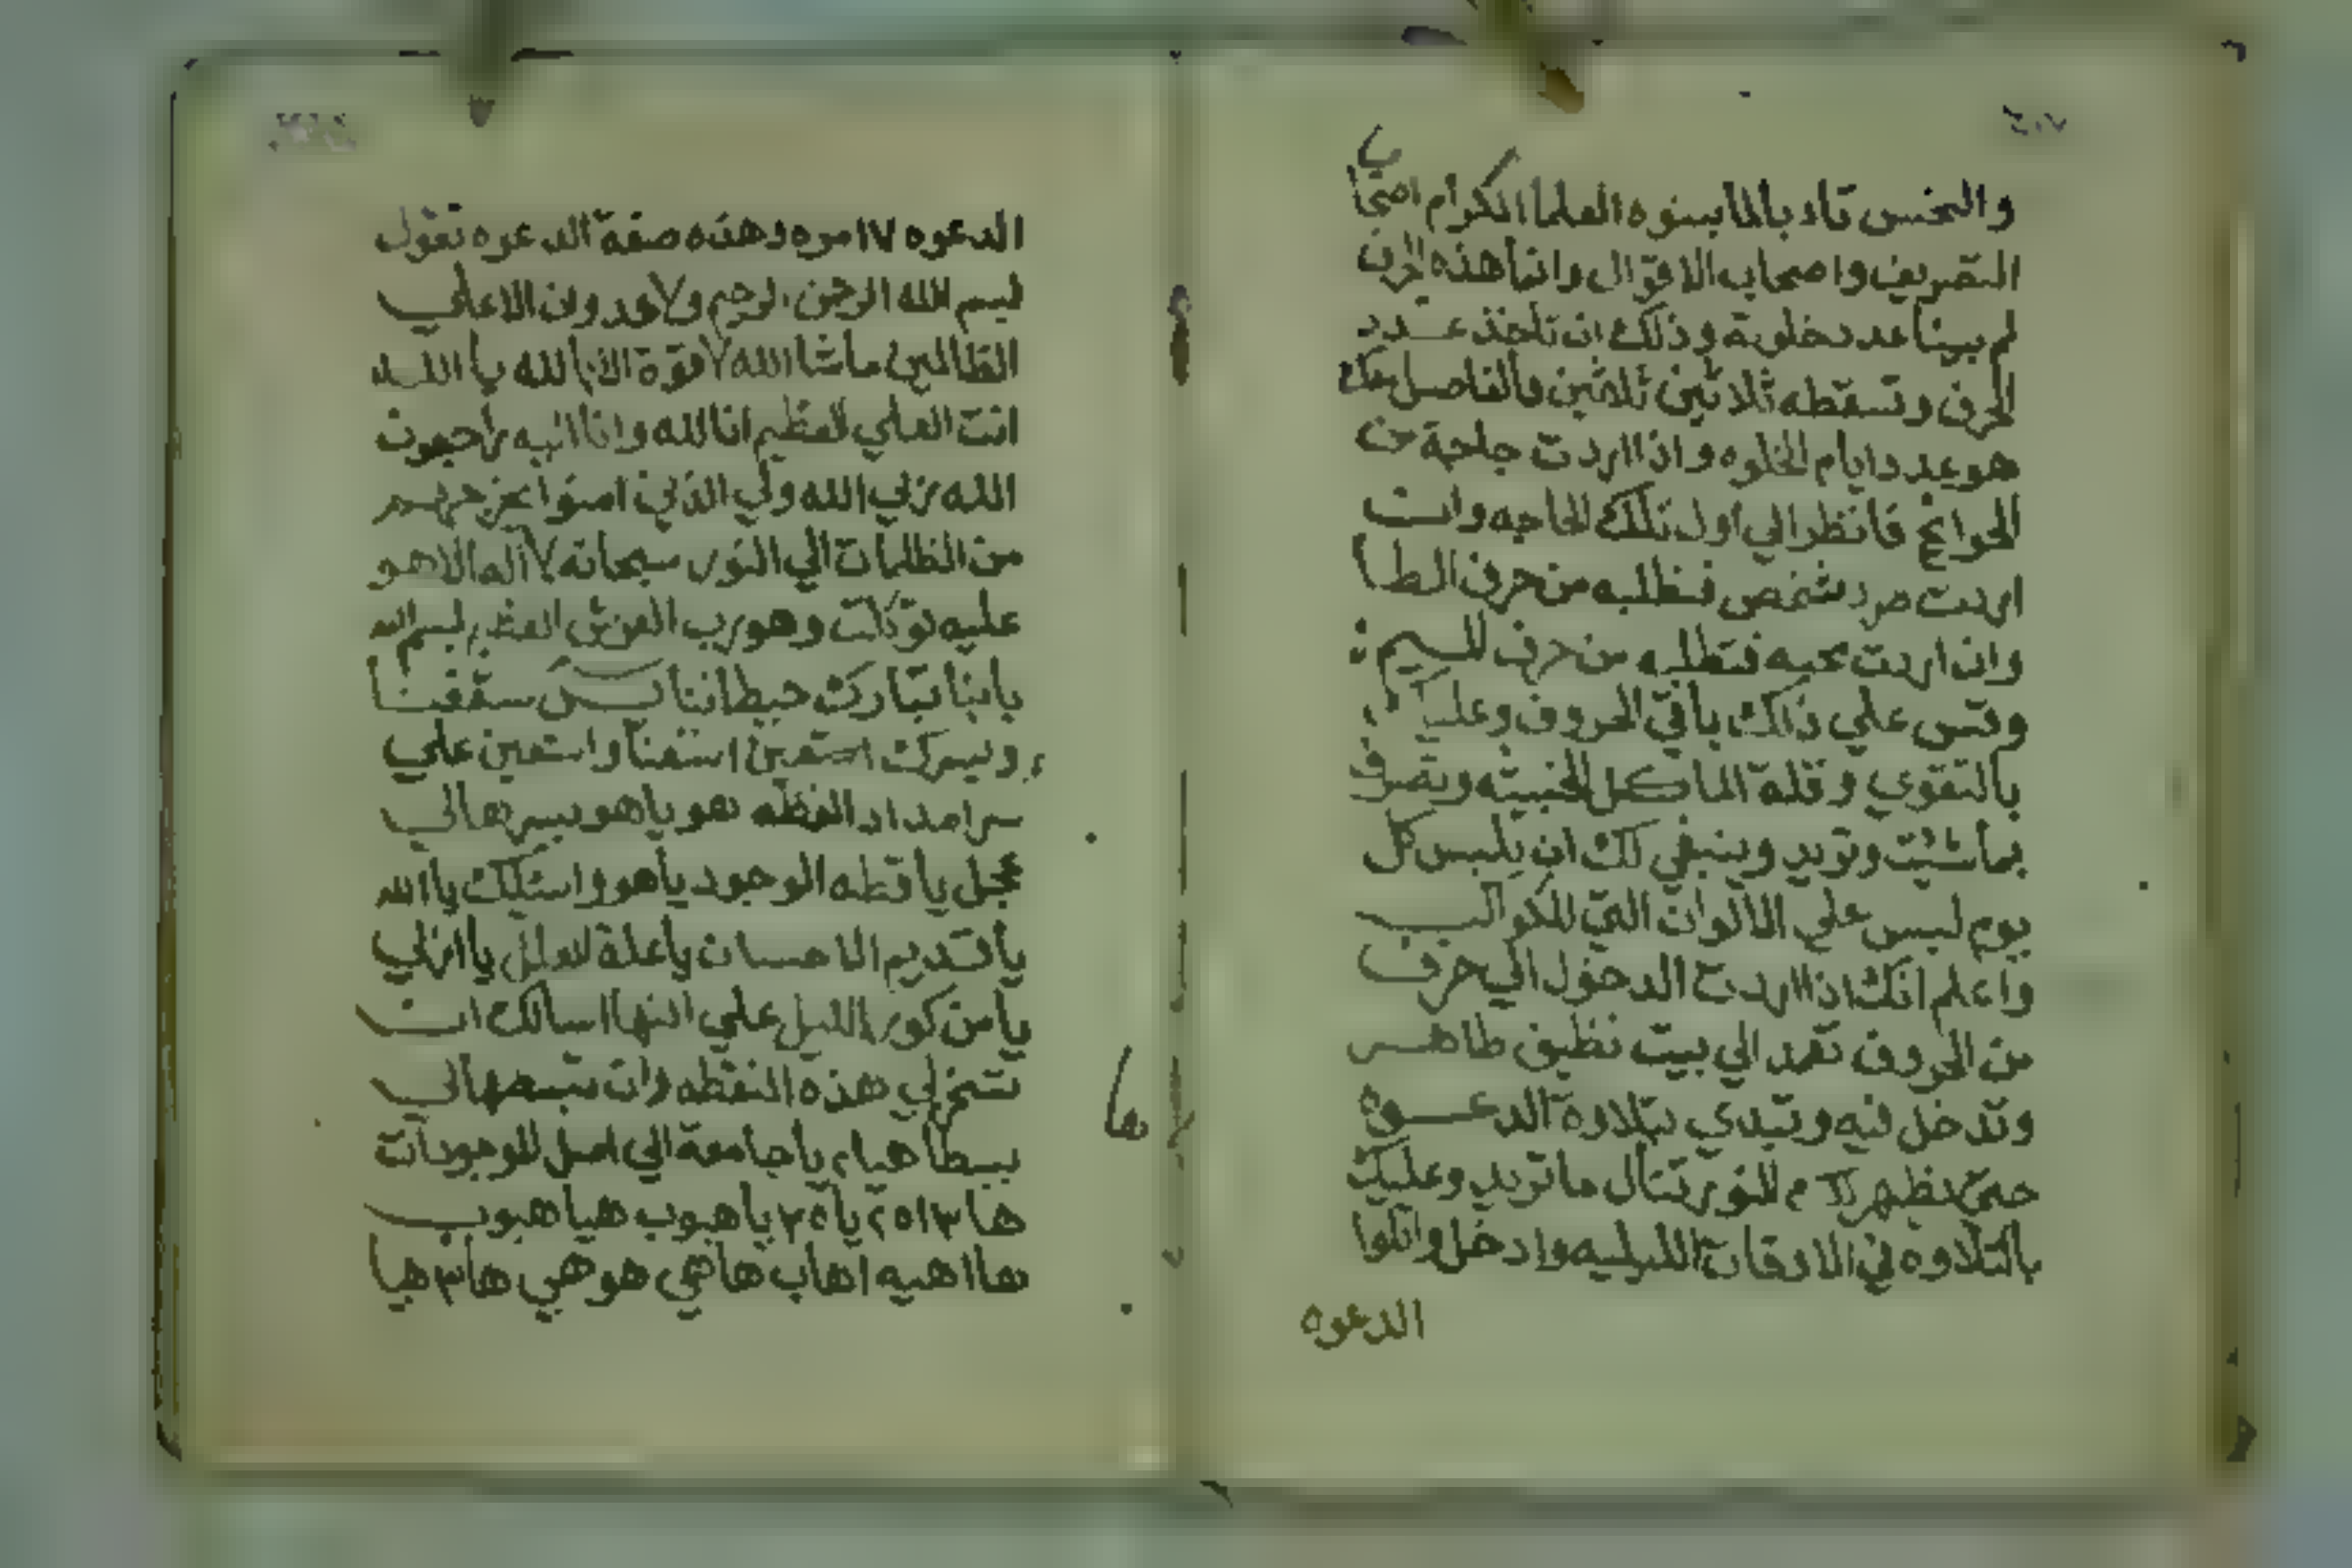 والنحس تاد بالما بينوه العلما الكرام اصحاب
التصريف واصحاب الاقوال وانما هذه الحرف
لم يبينا عدد خلوية وذلك ان تاخذ عدد
الحرف وتسقطه ثلاثين ثلاثين والفاصل معك
هو عدد ايام الخلوه واذا اردت حاجة من
الحوايج فانظر الي اول تلك الحاجه وان
اردت شخص فتطلبه من حرف الطا
وان اردت محبه فتطلبه من حرف الميم
وقس علي ذلك باقي الحروف وعليك
بالتقوي وقلة الماكل الخبيثه وتصرف
بما شئت وتريد وينبغي لك ان يلبس كل
يوم لبس علي الالوان التي للكواكب
واعلم انك اذا اردت الدخول الي حرف
من الحروف تعمد الي بيت نظيف طاهر
وتدخل فيه وتبدي بتلاوة الدعوه
حتي تظهر لك النور تنال ما تريد وعليك
بالتلاوه في الاوقات الليليه وادخل واتلوا
الدعوه
الدعوه ١٧ مره وهذه صفة الدعوه تقول
بسم الله الرحمن الرحيم ولا عدوان الا علي
الظالمين ماشا الله لا قوة الا بالله يا الله
انت العلي العظيم انا لله وانا اليه راجعون
الله ربي الله ولي الذين امنوا يخرجهم
من الظلمات الي النور سبحانه لا اله الا هو
عليه توكلت وهو رب العرش العظيم بسم الله
بابنا تبارك حيطاننا يس سقفنا
واستعين علي
سر امداد النقطه هو يا هو يسرها لي
عجل يا نقطه الوجود يا هو واسئلك يا الله
يا قديم الاحسان يا علة العلل يا ازلي
يا من كور الليل علي النهار اسالك ان
تسخر لي هذه النقطه وان تبسطها لي
ها
بسطا هيام يا جامعة الي اصل الموجودات
يا هبوب هيا هبوب
ها اهيه اهاب هاهي هو هي